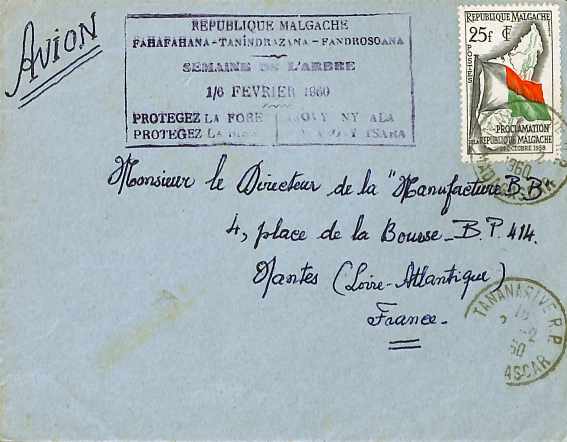 Avion
REPUBLIQUE MALGACHE
FAHAFAHANA - TANINDRAZANA - FANDROSOANA
SEMAINE DE L'ARBRE
1/6 FEVRIER 1960
PROTEGEZ LA FORE NY ALA
PROTEGEZ LA TSARA
REPUBLIQUE MALGACHE
25f
POSTES
PROCLAMATION
DE LA REPUBLIQUE MALGACHE
OCTOBRE 1958
1960
Monsieur le Directeur de la "Manufacture B.B"
4, place de la Bourse - B.P. 414.
Nantes (Loire-Atlantique)
France.
TANANARIVE R.P.
2
60
ASCAR